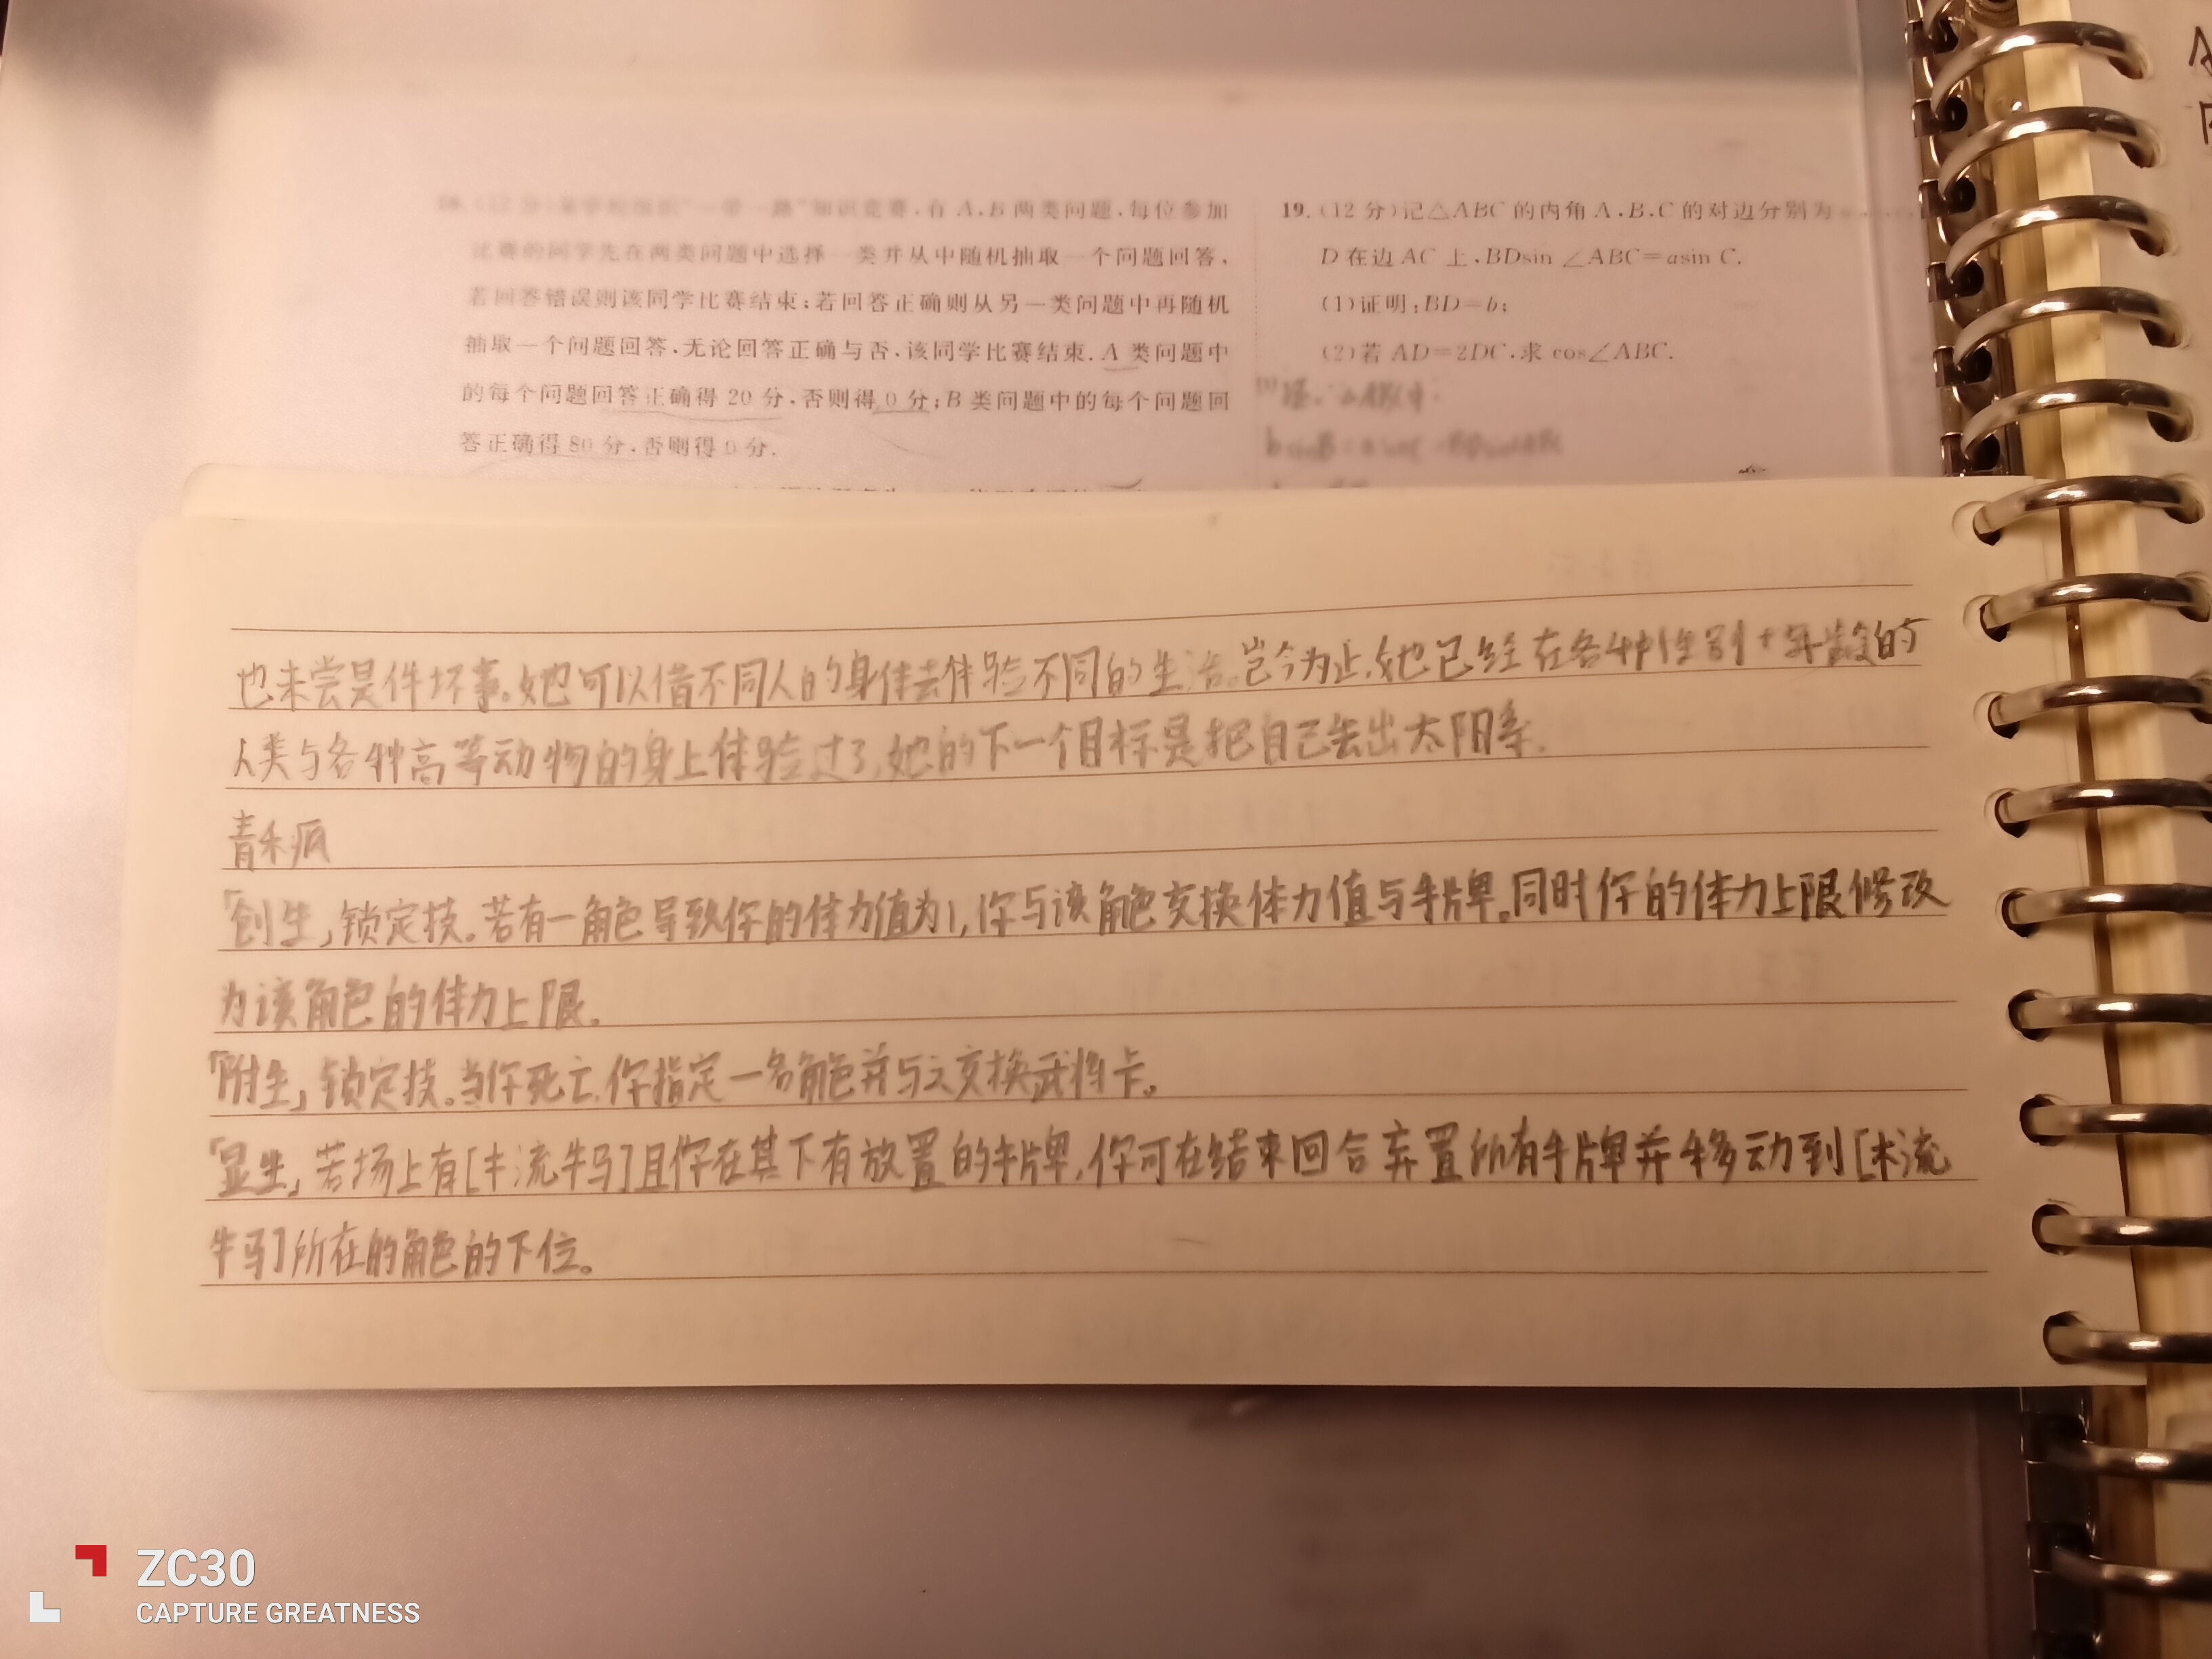 18.(12分)某学校组织“一带一路”知识竞赛,有A,B两类问题,每位参加
比赛的同学先在两类问题中选择一类并从中随机抽取一个问题回答,
若回答错误则该同学比赛结束;若回答正确则从另一类问题中再随机
抽取一个问题回答,无论回答正确与否,该同学比赛结束.A类问题中
的每个问题回答正确得20分,否则得0分;B类问题中的每个问题回
答正确得80分,否则得0分.
19.(12分)记△ABC的内角A,B,C的对边分别为
D在边AC上,BDsin∠ABC=asin C.
(1)证明:BD=b;
(2)若AD=2DC,求cos∠ABC.
也未尝是件坏事。她可以借不同人的身体去体验不同的生活。岂今为止,她已经在各种性别+年龄段的
人类与各种高等动物的身上体验过了,她的下一个目标是把自己丢出太阳系.
青禾疯
「创生」锁定技。若有一角色导致你的体力值为1,你与该角色交换体力值与手牌。同时你的体力上限修改
为该角色的体力上限。
「附生」锁定技。当你死亡,你指定一名角色并与之交换武将卡。
「显生」若场上有[木流牛马]且你在其下有放置的手牌,你可在结束回合弃置所有手牌并移动到[木流
牛马]所在的角色的下位。
ZC30
CAPTURE GREATNESS